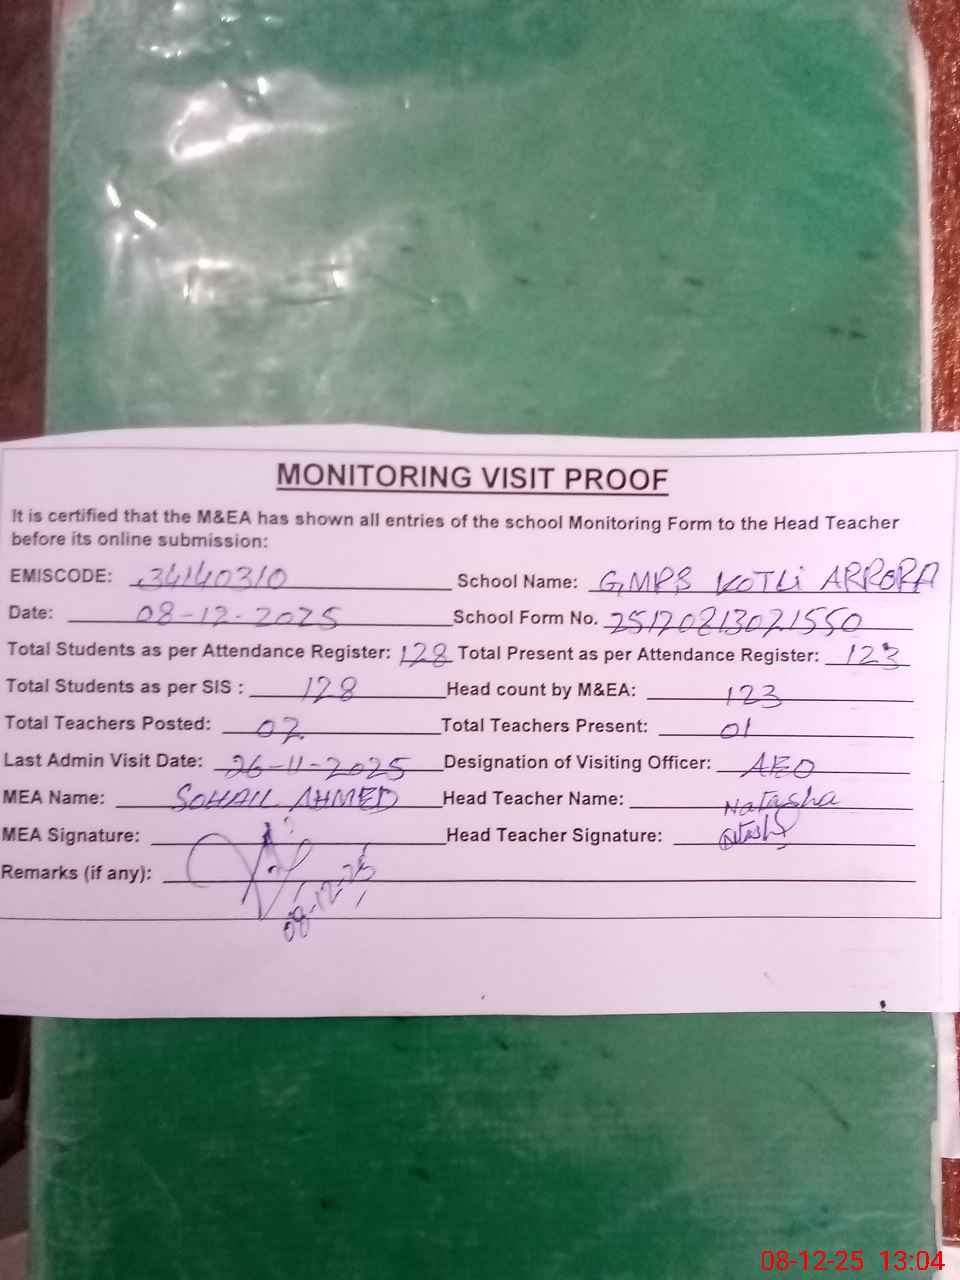 MONITORING VISIT PROOF
It is certified that the M&EA has shown all entries of the school Monitoring Form to the Head Teacher
before its online submission:
EMISCODE: 34140310 School Name: GMPS KOTLI ARRORA
Date: 08-12-2025 School Form No. 25120813021550
Total Students as per Attendance Register: 128 Total Present as per Attendance Register: 123
Total Students as per SIS : 128 Head count by M&EA: 123
Total Teachers Posted: 02 Total Teachers Present: 01
Last Admin Visit Date: 26-11-2025 Designation of Visiting Officer: AEO
MEA Name: SOHAIL AHMED Head Teacher Name: Natasha
MEA Signature: Head Teacher Signature:
Remarks (if any):
08-12-25
08-12-25 13:04